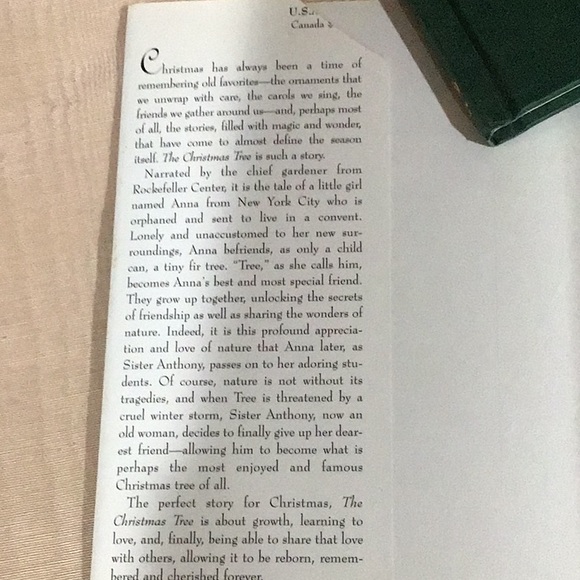 U.S.
Canada
Christmas has always been a time of
remembering old favorites—the ornaments that
we unwrap with care, the carols we sing, the
friends we gather around us—and, perhaps most
of all, the stories, filled with magic and wonder,
that have come to almost define the season
itself. The Christmas Tree is such a story.
Narrated by the chief gardener from
Rockefeller Center, it is the tale of a little girl
named Anna from New York City who is
orphaned and sent to live in a convent.
Lonely and unaccustomed to her new sur-
roundings, Anna befriends, as only a child
can, a tiny fir tree. "Tree," as she calls him,
becomes Anna's best and most special friend.
They grow up together, unlocking the secrets
of friendship as well as sharing the wonders of
nature. Indeed, it is this profound apprecia-
tion and love of nature that Anna later, as
Sister Anthony, passes on to her adoring stu-
dents. Of course, nature is not without its
tragedies, and when Tree is threatened by a
cruel winter storm, Sister Anthony, now an
old woman, decides to finally give up her dear-
est friend—allowing him to become what is
perhaps the most enjoyed and famous
Christmas tree of all.
The perfect story for Christmas, The
Christmas Tree is about growth, learning to
love, and, finally, being able to share that love
with others, allowing it to be reborn, remem-
bered and cherished forever.